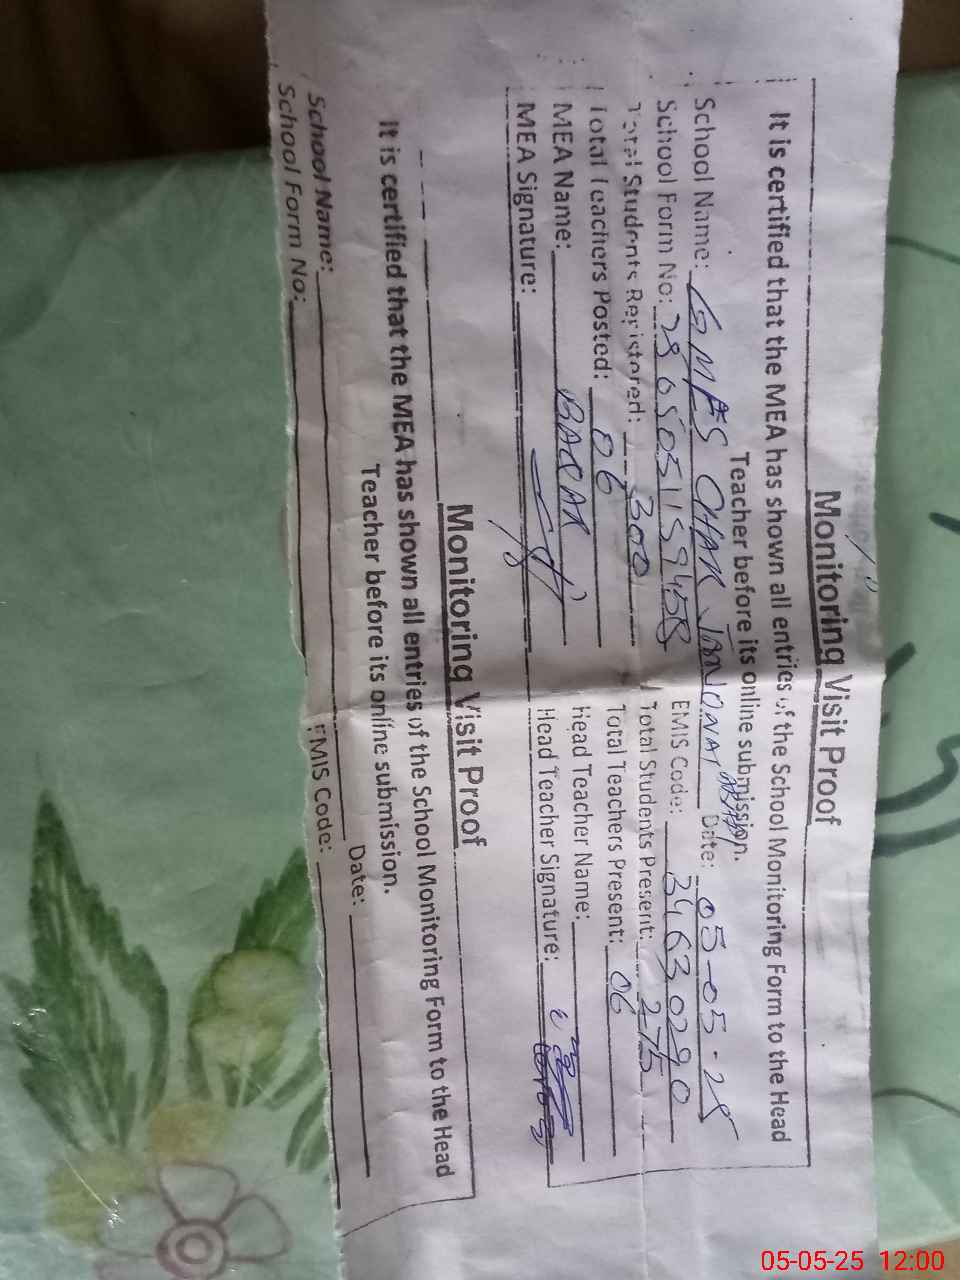 Monitoring Visit Proof
It is certified that the MEA has shown all entries of the School Monitoring Form to the Head
Teacher before its online submission.
School Name: GMPS CHAK Date: 05-05-25
School Form No: EMIS Code: 34630290
Total Students Registered: 300 Total Students Present: 275
Total Teachers Posted: 06 Total Teachers Present: 06
MEA Name: BAQAR Head Teacher Name:
MEA Signature: Head Teacher Signature:
Monitoring Visit Proof
It is certified that the MEA has shown all entries of the School Monitoring Form to the Head
Teacher before its online submission.
School Name: Date:
School Form No: EMIS Code:
05-05-25 12:00